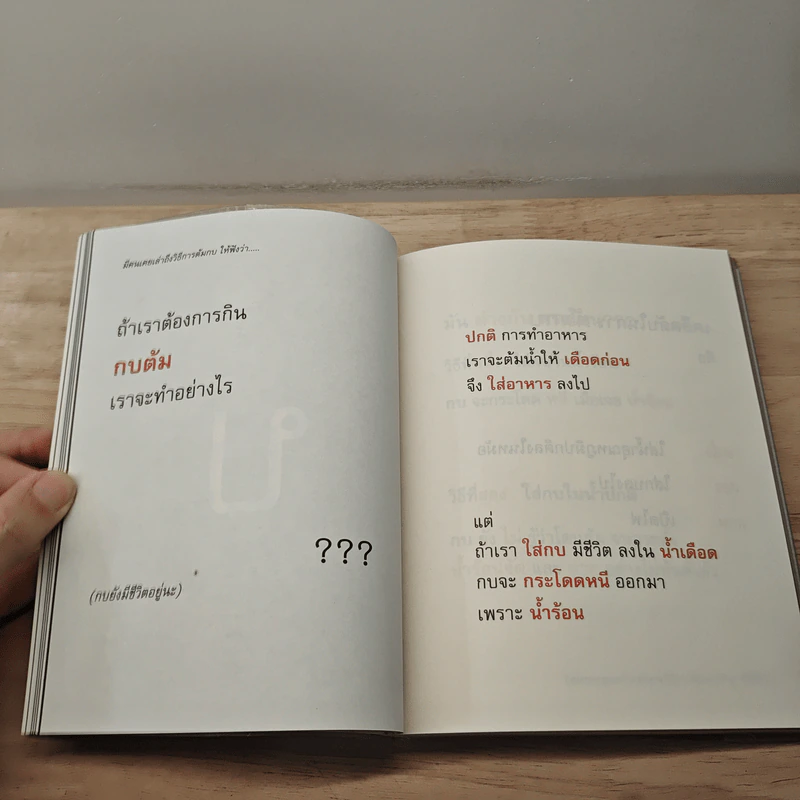 มีคนเคยเล่าถึงวิธีการต้มกบ ให้ฟังว่า.....
ถ้าเราต้องการกิน
กบต้ม
เราจะทำอย่างไร
???
(กบยังมีชีวิตอยู่นะ)
ปกติ การทำอาหาร
เราจะต้มน้ำให้ เดือดก่อน
จึง ใส่อาหาร ลงไป
แต่
ถ้าเรา ใส่กบ มีชีวิต ลงใน น้ำเดือด
กบจะ กระโดดหนี ออกมา
เพราะ น้ำร้อน